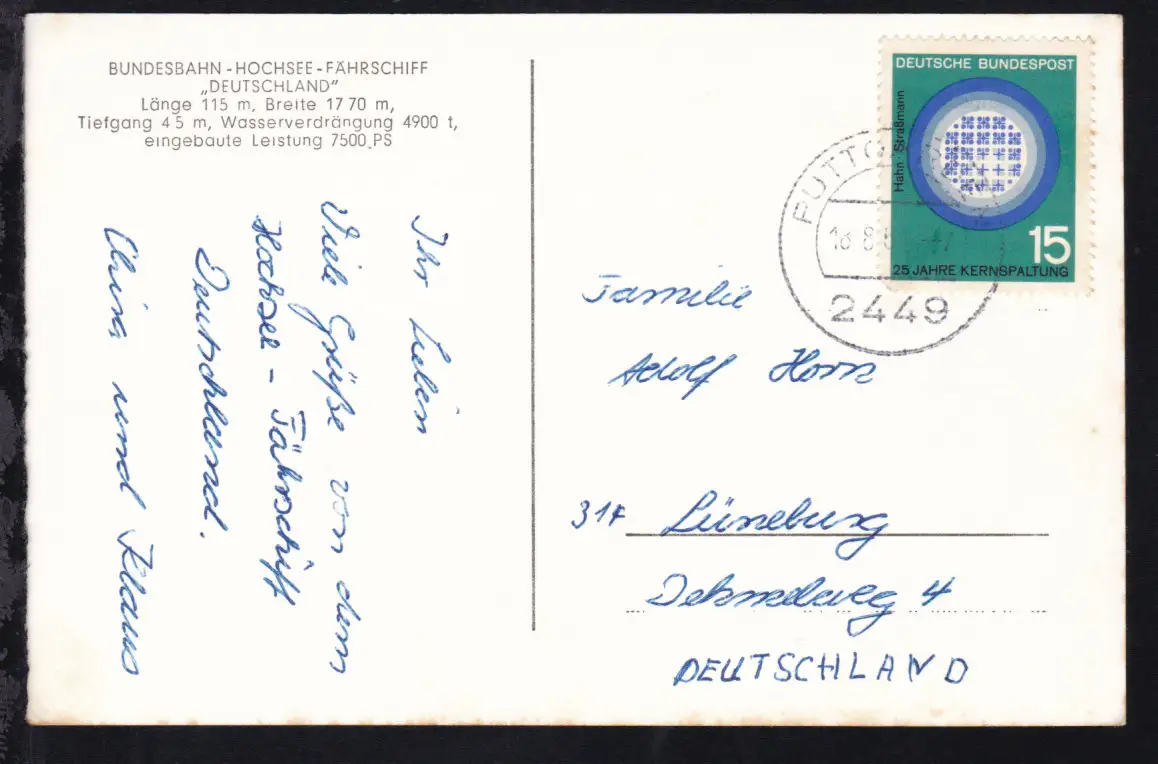 BUNDESBAHN-HOCHSEE-FÄHRSCHIFF
„DEUTSCHLAND"
Länge 115 m, Breite 17 70 m,
Tiefgang 4 5 m, Wasserverdrängung 4900 t,
eingebaute Leistung 7500 PS
Ihr Lieben
Viele Grüße von dem
Hochsee-Fährschiff
Deutschland.
und Klaus
DEUTSCHE BUNDESPOST
Hahn · Straßmann
15
25 JAHRE KERNSPALTUNG
PUTTG
2449
Familie
Adolf
314 Lüneburg
4
DEUTSCHLAND